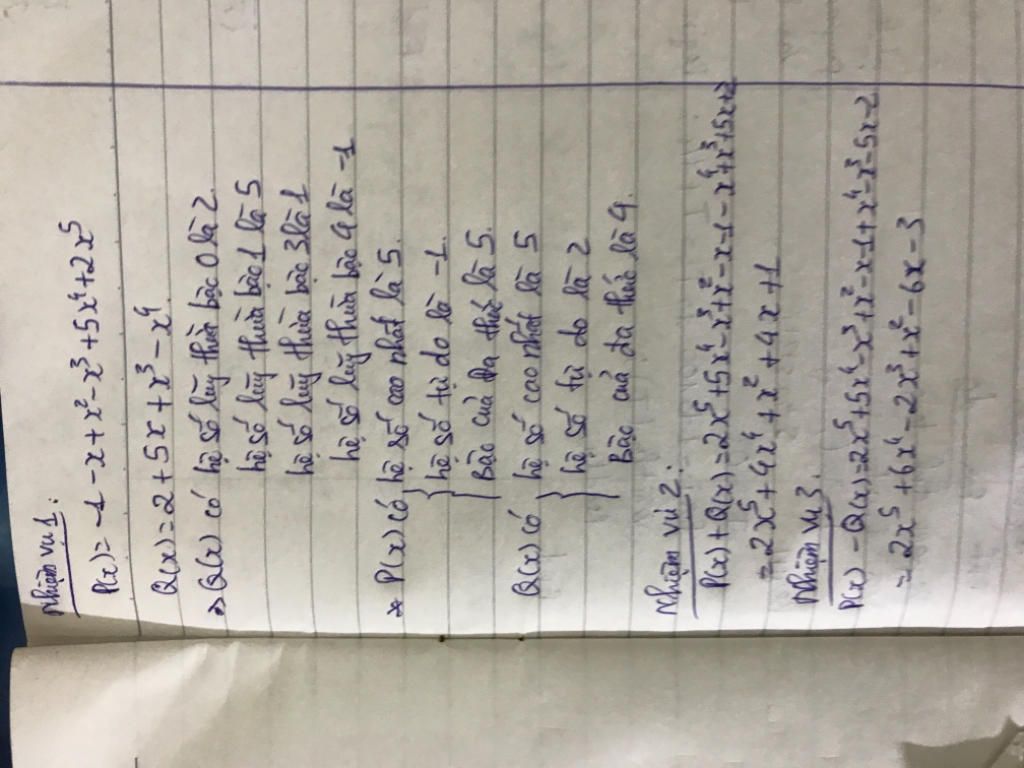 Nhiệm vụ 1:
P(x) = -1 - x + x² - x³ + 5x⁴ + 2x⁵
Q(x) = 2 + 5x + x³ - x⁴
→ Q(x) có hệ số lũy thừa bậc 0 là 2.
hệ số lũy thừa bậc 1 là 5
hệ số lũy thừa bậc 3 là 1
hệ số lũy thừa bậc 4 là -1
* P(x) có hệ số cao nhất là 5.
hệ số tự do là -1.
Bậc của đa thức là 5.
Q(x) có hệ số cao nhất là 5
hệ số tự do là 2
Bậc của đa thức là 4.
Nhiệm vụ 2:
P(x) + Q(x) = 2x⁵ + 5x⁴ - x³ + x² - x - 1 - x⁴ + x³ + 5x + 2
= 2x⁵ + 4x⁴ + x² + 4x + 1
Nhiệm vụ 3.
P(x) - Q(x) = 2x⁵ + 5x⁴ - x³ + x² - x - 1 + x⁴ - x³ - 5x - 2
= 2x⁵ + 6x⁴ - 2x³ + x² - 6x - 3